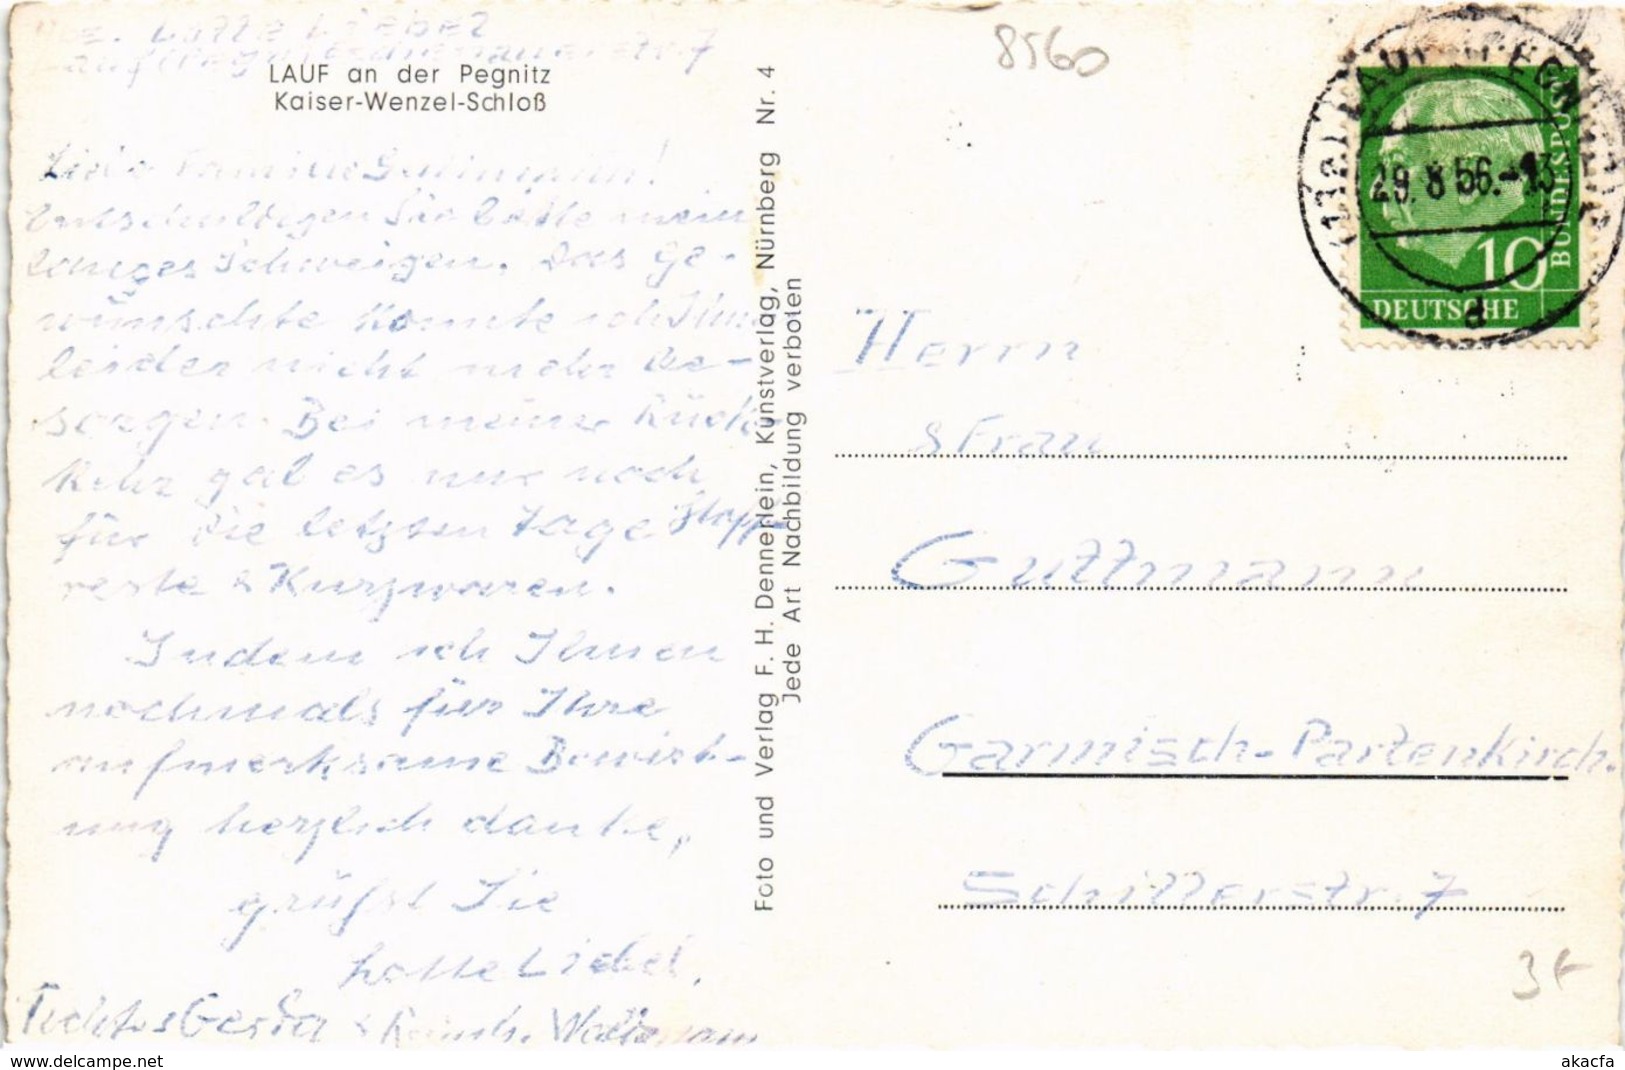 Abs. Lotte Liebel
Lauf (Pegnitz)
LAUF an der Pegnitz
Kaiser-Wenzel-Schloß
Liebe Familie Guttmann!
Entschuldigen Sie bitte mein
langes Schweigen. Das ge-
wünschte konnte ich Ihnen
leider nicht mehr be-
sorgen. Bei meiner Rück-
kehr gab es nur noch
für die letzten Tage Stoff-
reste & Kurzwaren.
Indem ich Ihnen
nochmals für Ihre
aufmerksame Bewirt-
ung herzlich danke,
grüßt Sie
Lotte Liebel,
Tochter Gerda &
Foto und Verlag F. H. Dennerlein, Kunstverlag, Nürnberg Nr. 4
Jede Art Nachbildung verboten
8560
LAUF (PEGNITZ)
(13a)
29. 8 56.-13
d
10
DEUTSCHE
BUNDESPOST
Herrn
& Frau
Guttmann
Garmisch-Partenkirch.
Schillerstr. 7
akpool.de
akacfa